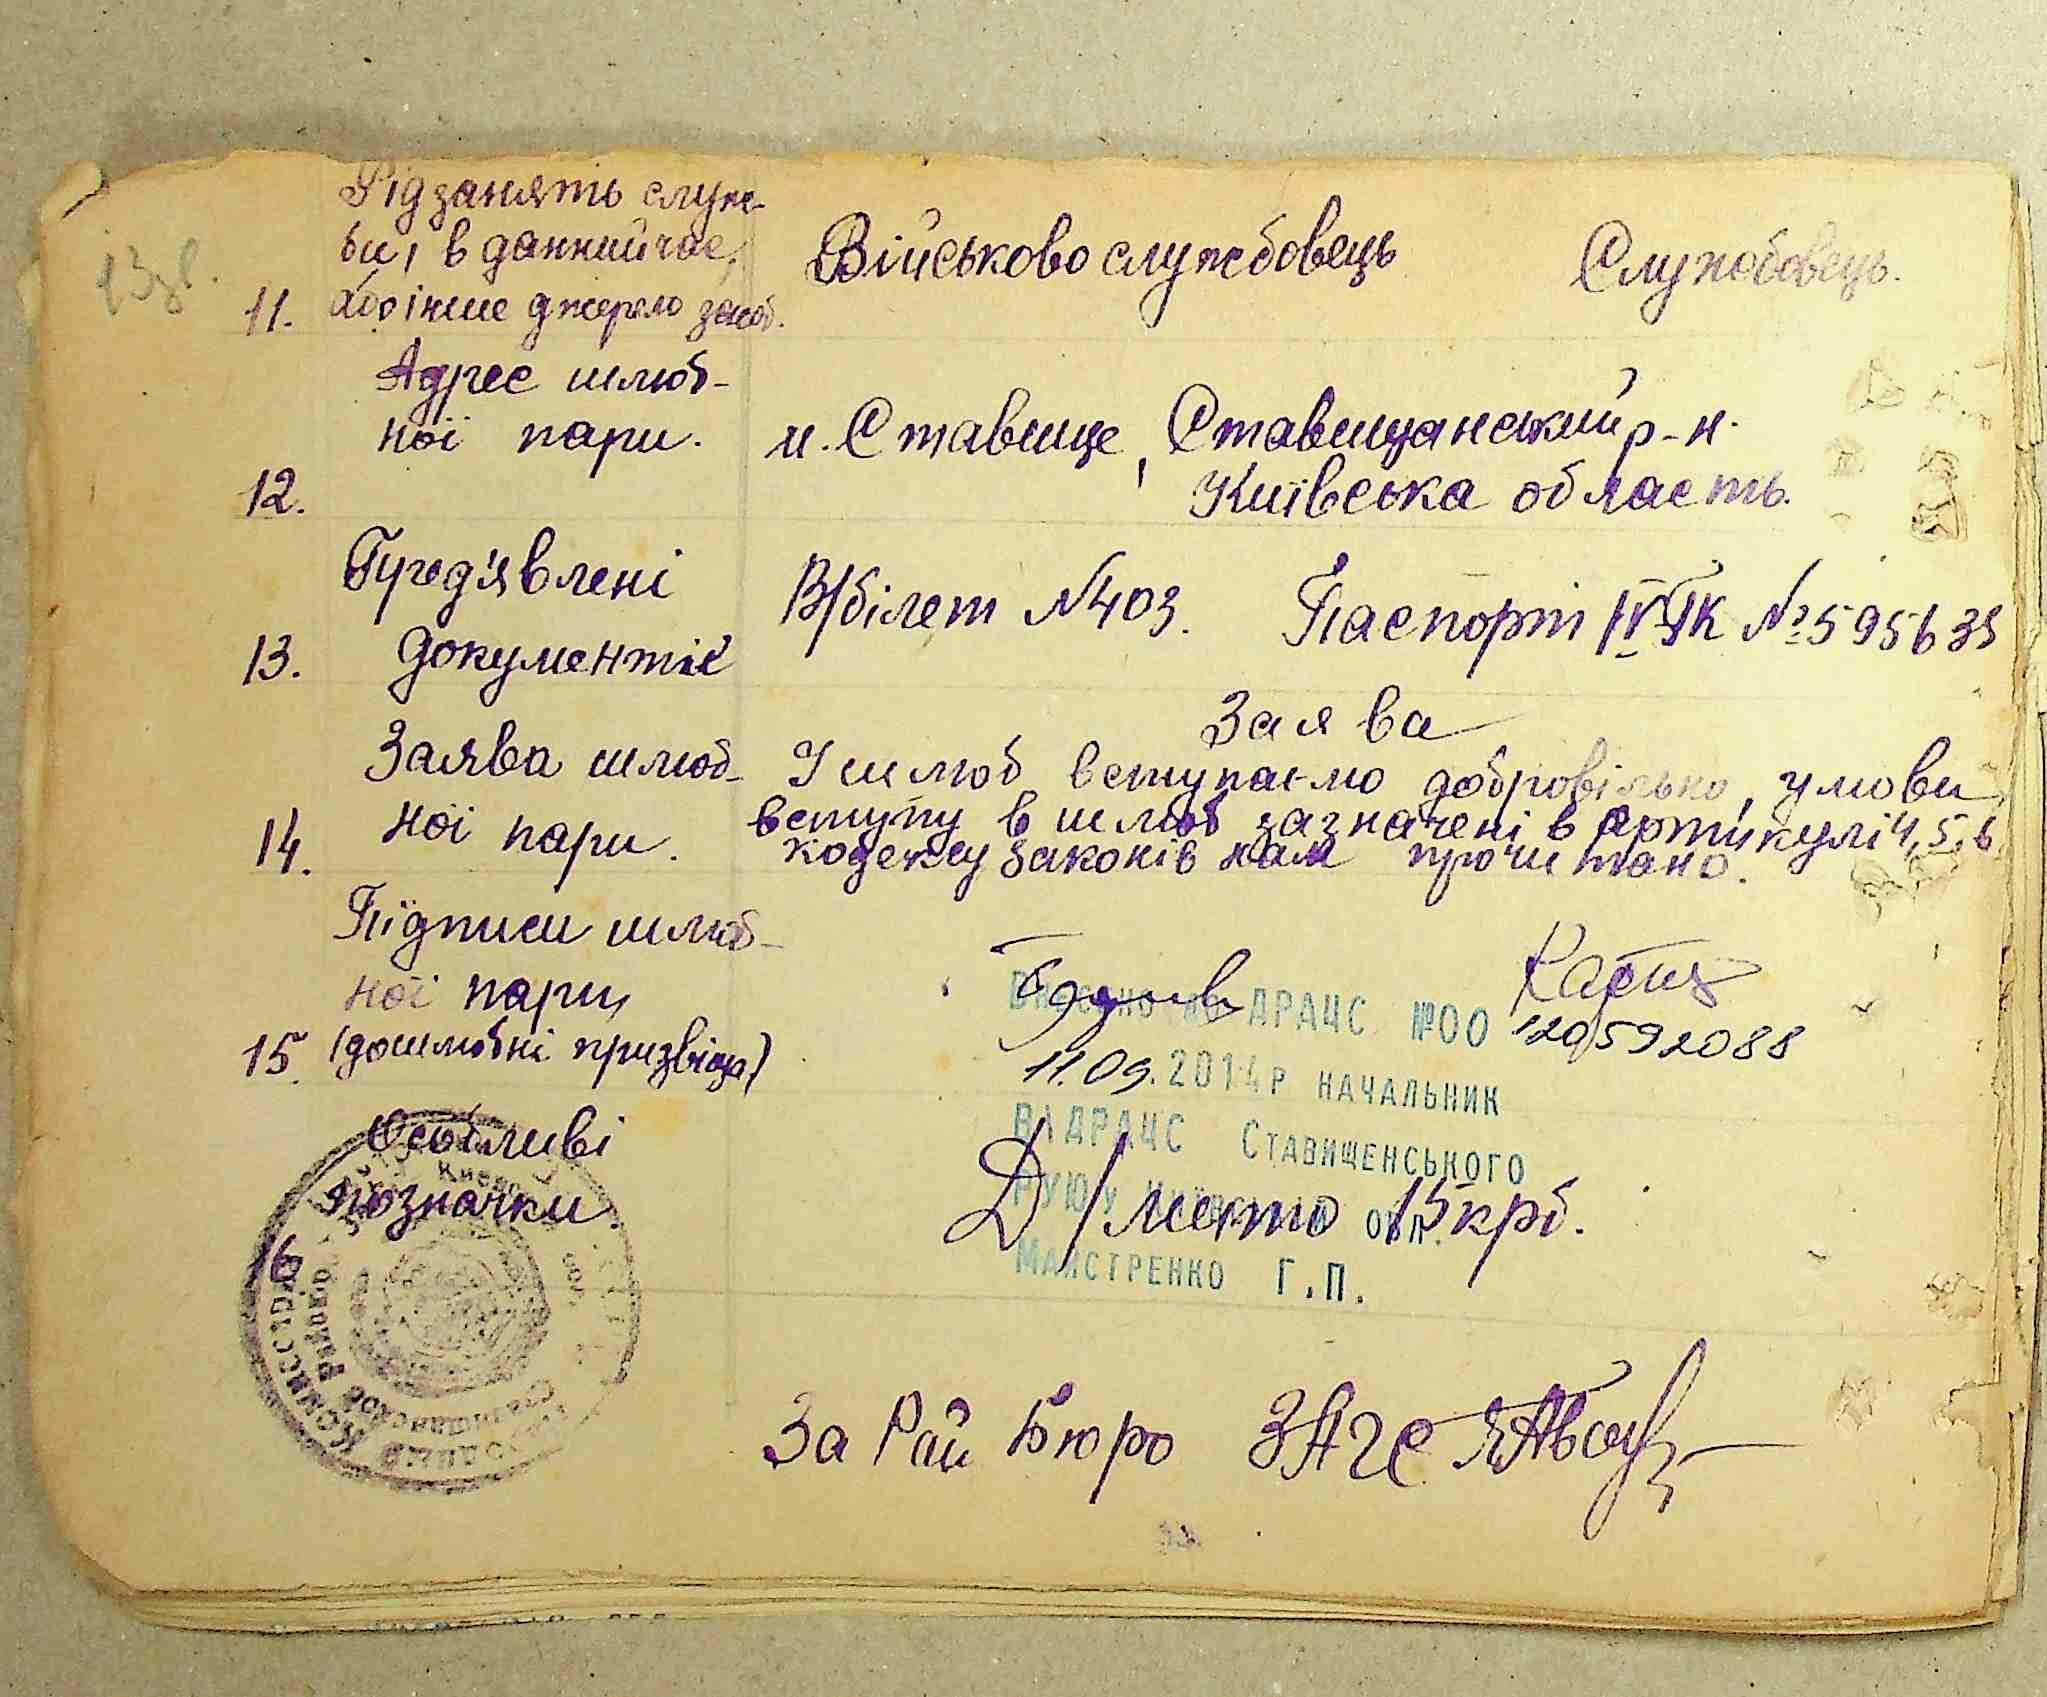 13зв.
Рід занять служ-
би, в данний час,
11. або інше джерело засоб.
Військово службовець Службовець.
Адрес шлюб-
ної пари.
12.
м. Ставище, Ставищанський р-н.
Київська область.
Пред'явлені
13. документів
В/білет №403. Паспорт IV ТК № 595635
Заява шлюб-
14. ної пари.
Заява
У шлюб вступаємо добровільно, умови
вступу в шлюб зазначені в артикулі 4, 5, 6
кодексу законів нам прочитано.
Підписи шлюб-
ної пари
15. (дошлюбні призвіща)
Внесено до ДРАЦС №00 120592088
11.09.2014р начальник
ВДРАЦС Ставищенського
РУЮ у Київській обл.
Майстренко Г.П.
Особливі
позначки.
16
Д/мито 15 крб.
За Рай Бюро ЗАГС